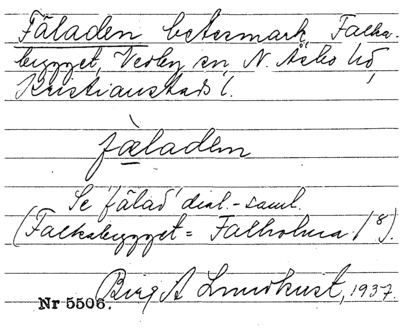 Fäladen betesmark, Falka-
bygget, Vedby sn, N. Åsbo hd,
Kristianstads l.
fæladen
Se 'fälad' dial.-saml.
(Falkabygget = Falholma 1/8).
Birg A Lundkvist, 1937.
Nr 5506.